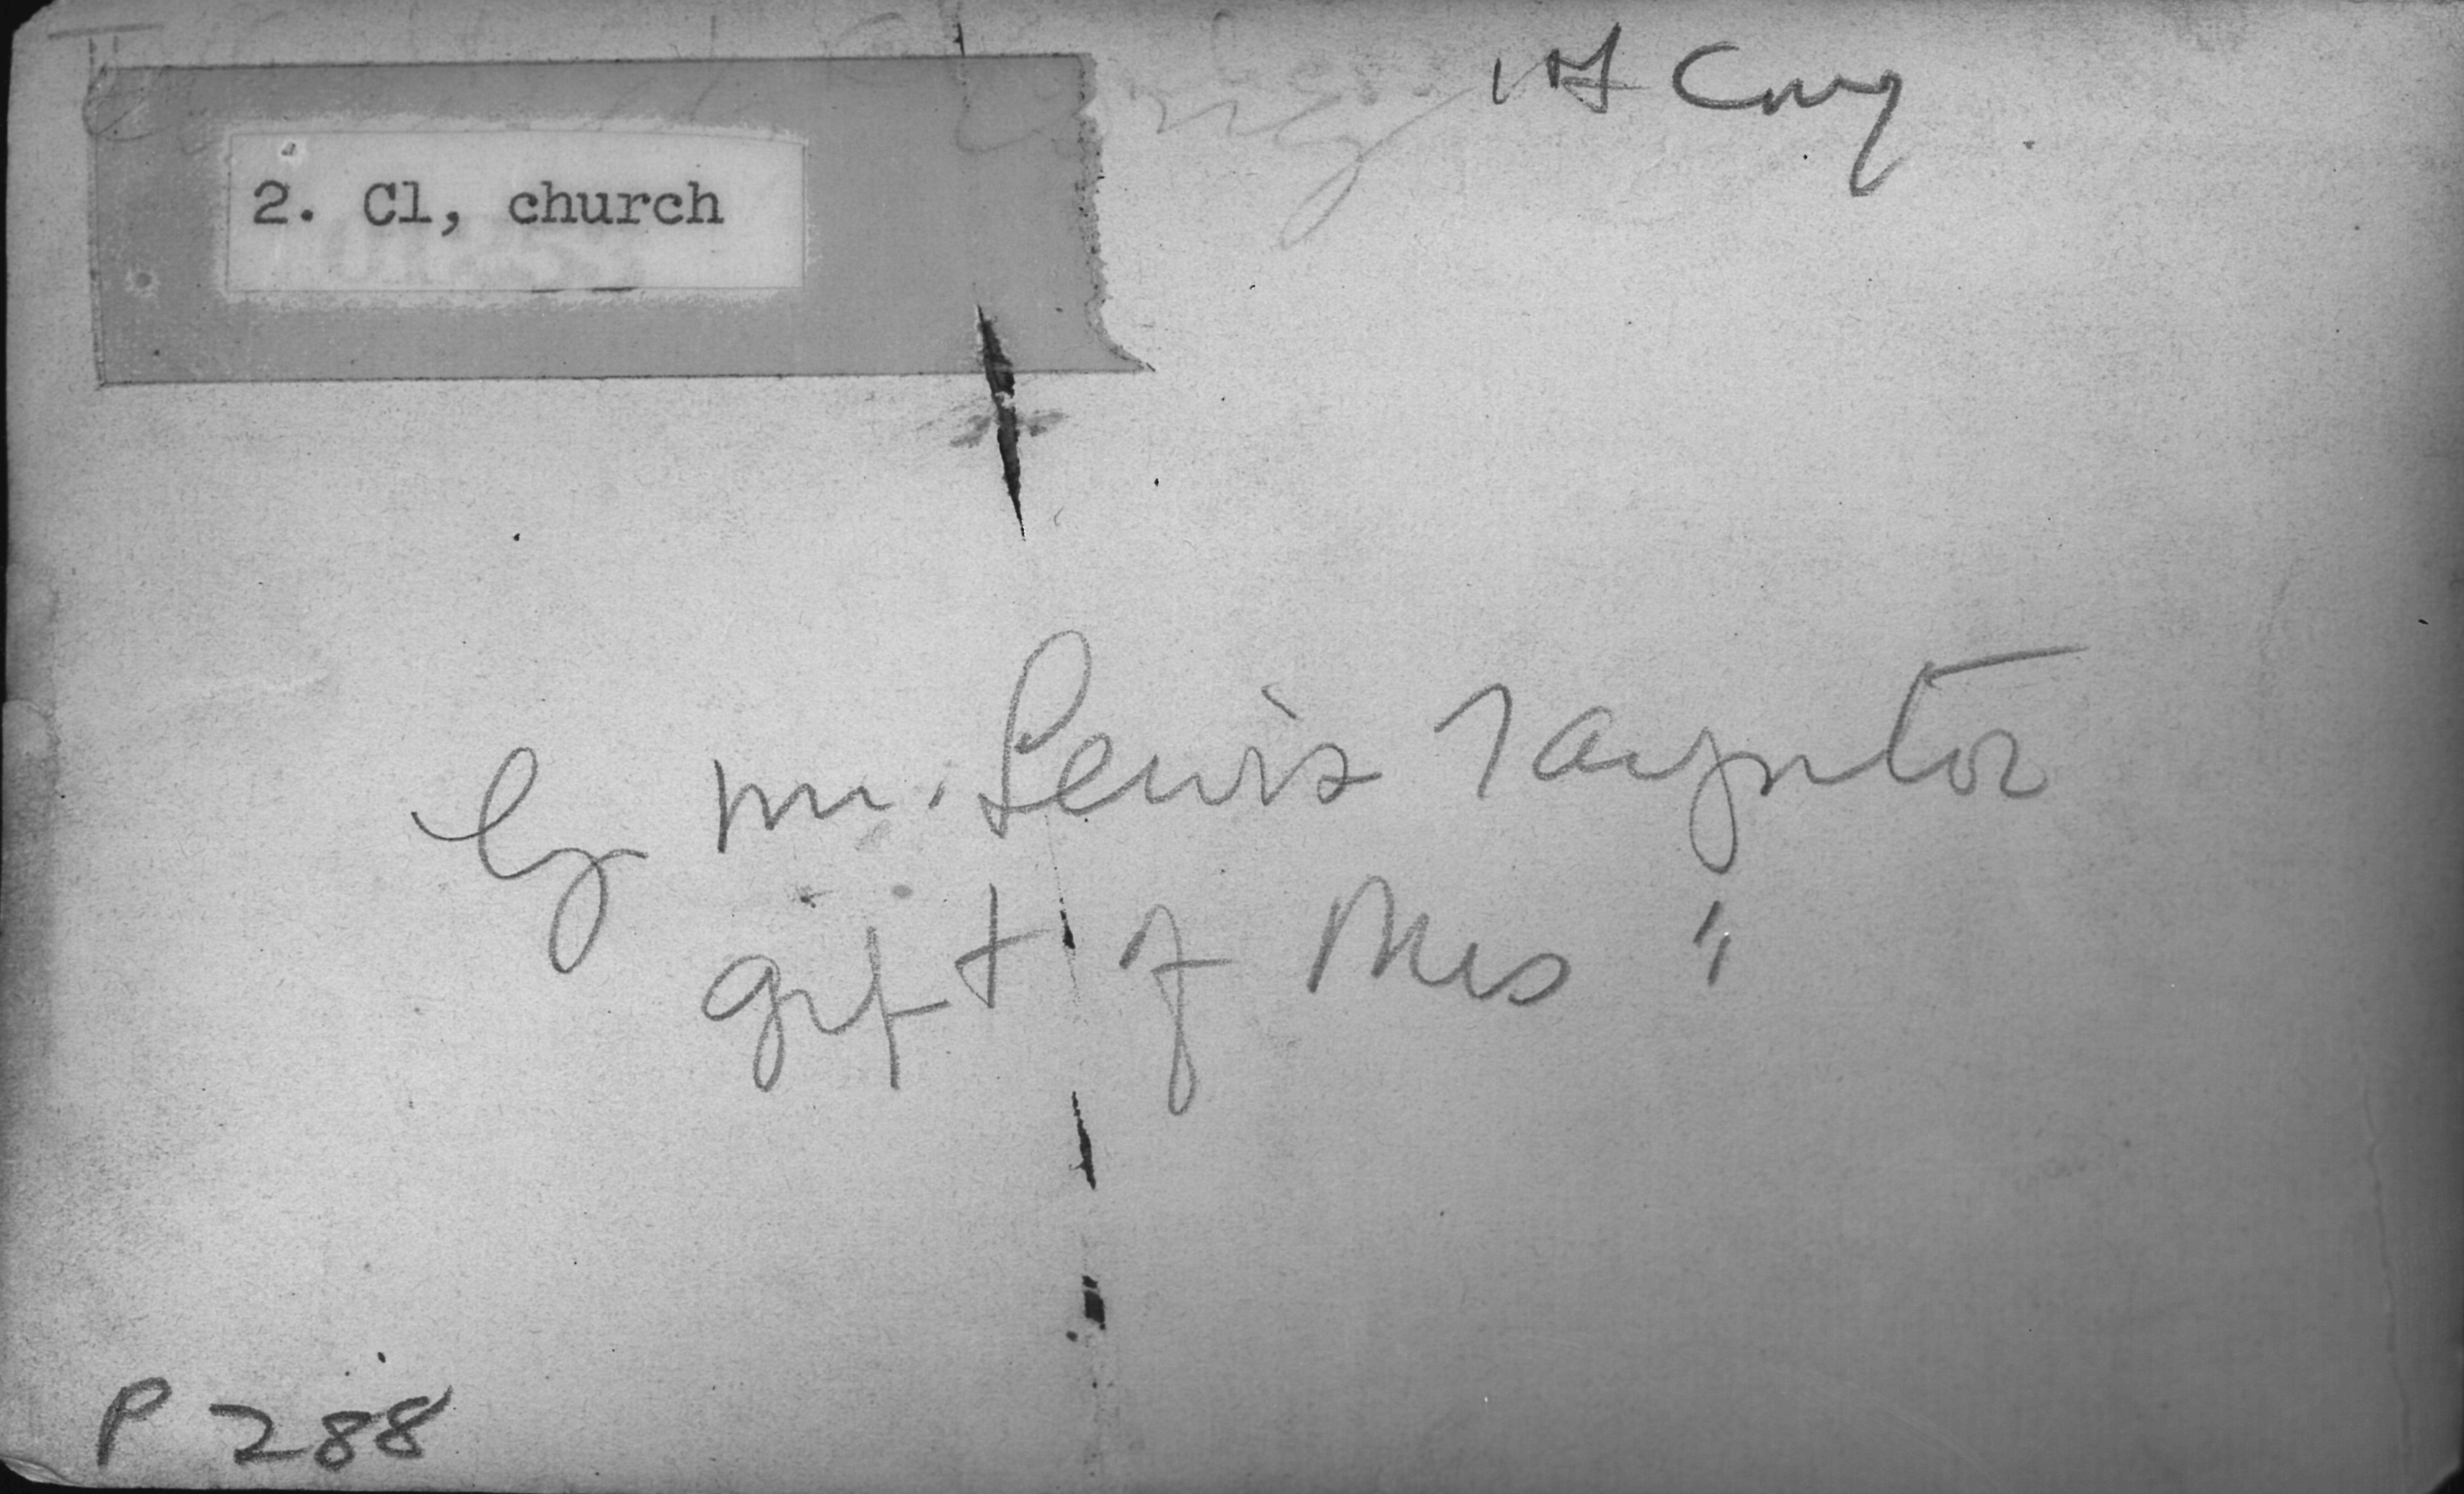 1st Cong
2. Cl, church
by Mr. Lewis Tayntor
gift of Mrs "
P 288